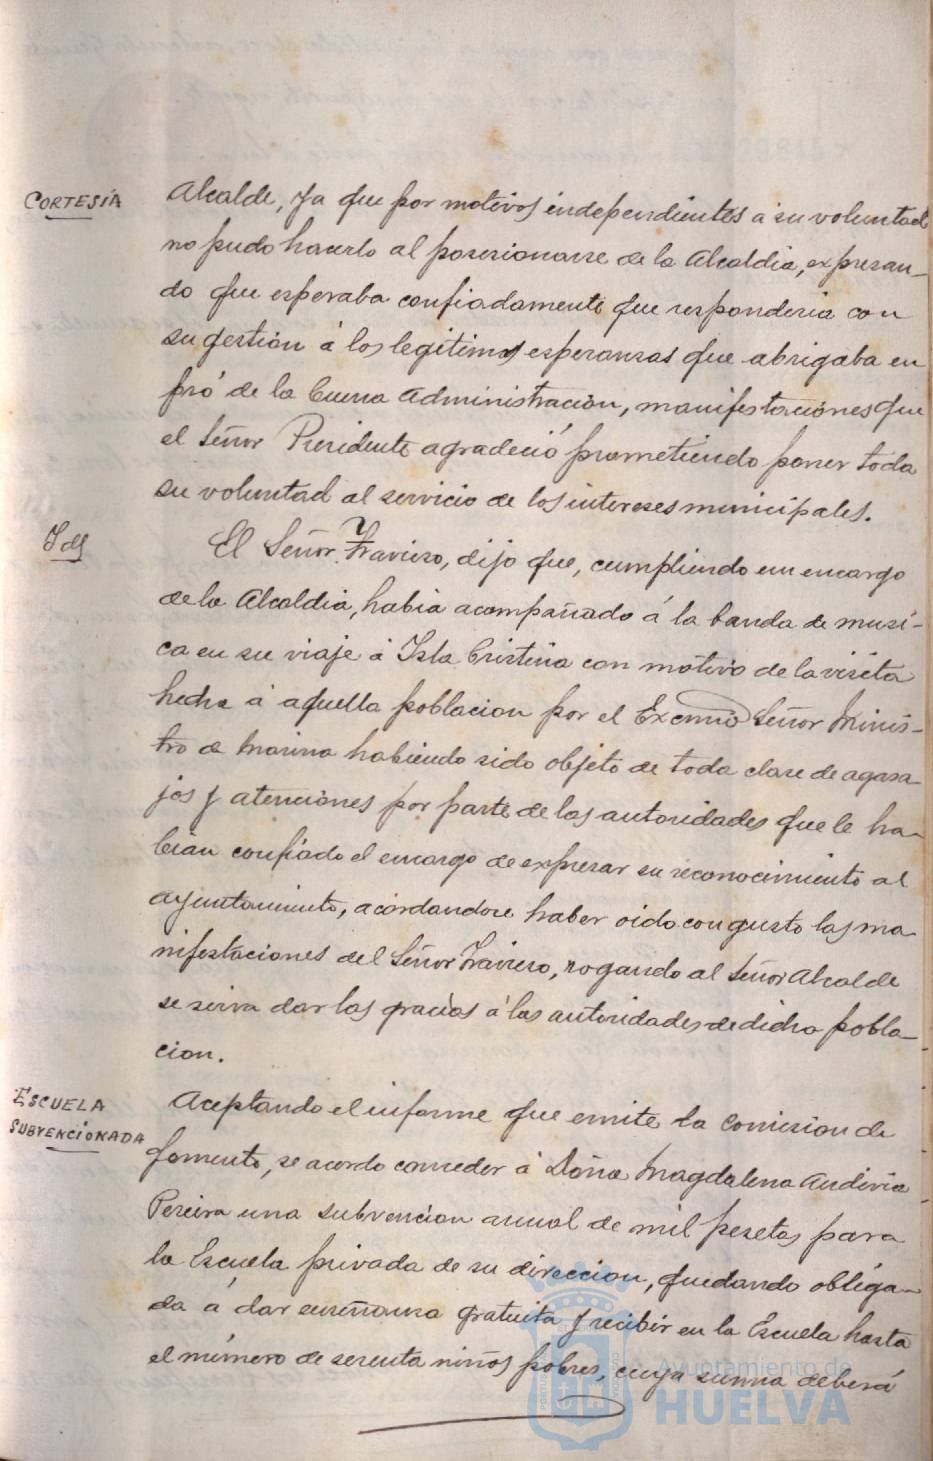 CORTESÍA
Alcalde, ya que por motivos independientes á su voluntad
no pudo hacerlo al posesionarse de la Alcaldia, expresan-
do que esperaba confiadamente que responderia con
su gestión á los legitimas esperanzas que abrigaba en
pró de la buena Administración, manifestaciones que
el Señor Presidente agradeció prometiendo poner toda
su voluntad al servicio de los intereses municipales.
Id
El Señor Traviero, dijo que, cumpliendo un encargo
de la Alcaldia, habia acompañado á la banda de musi-
ca en su viaje á Isla Cristina con motivo de la visita
hecha á aquella poblacion por el Excmo Señor Minis-
tro de Marina habiendo sido objeto de toda clase de agasa-
jos y atenciones por parte de las autoridades que le ha-
bian confiado el encargo de expresar su reconocimiento al
Ayuntamiento, acordandose haber oido con gusto las ma-
nifestaciones del Señor Traviero, rogando al Señor Alcalde
se sirva dar las gracias á las autoridades de dicha pobla-
cion.
ESCUELA
SUBVENCIONADA
Aceptando el informe que emite la Comision de
fomento, se acordo conceder á Doña Magdalena Andivia
Pereira una subvencion anual de mil pesetas para
la Escuela privada de su direccion, quedando obliga-
da á dar enseñanza gratuita y recibir en la Escuela hasta
el número de sesenta niños pobres, cuya suma deberá
Ayuntamiento de
HUELVA